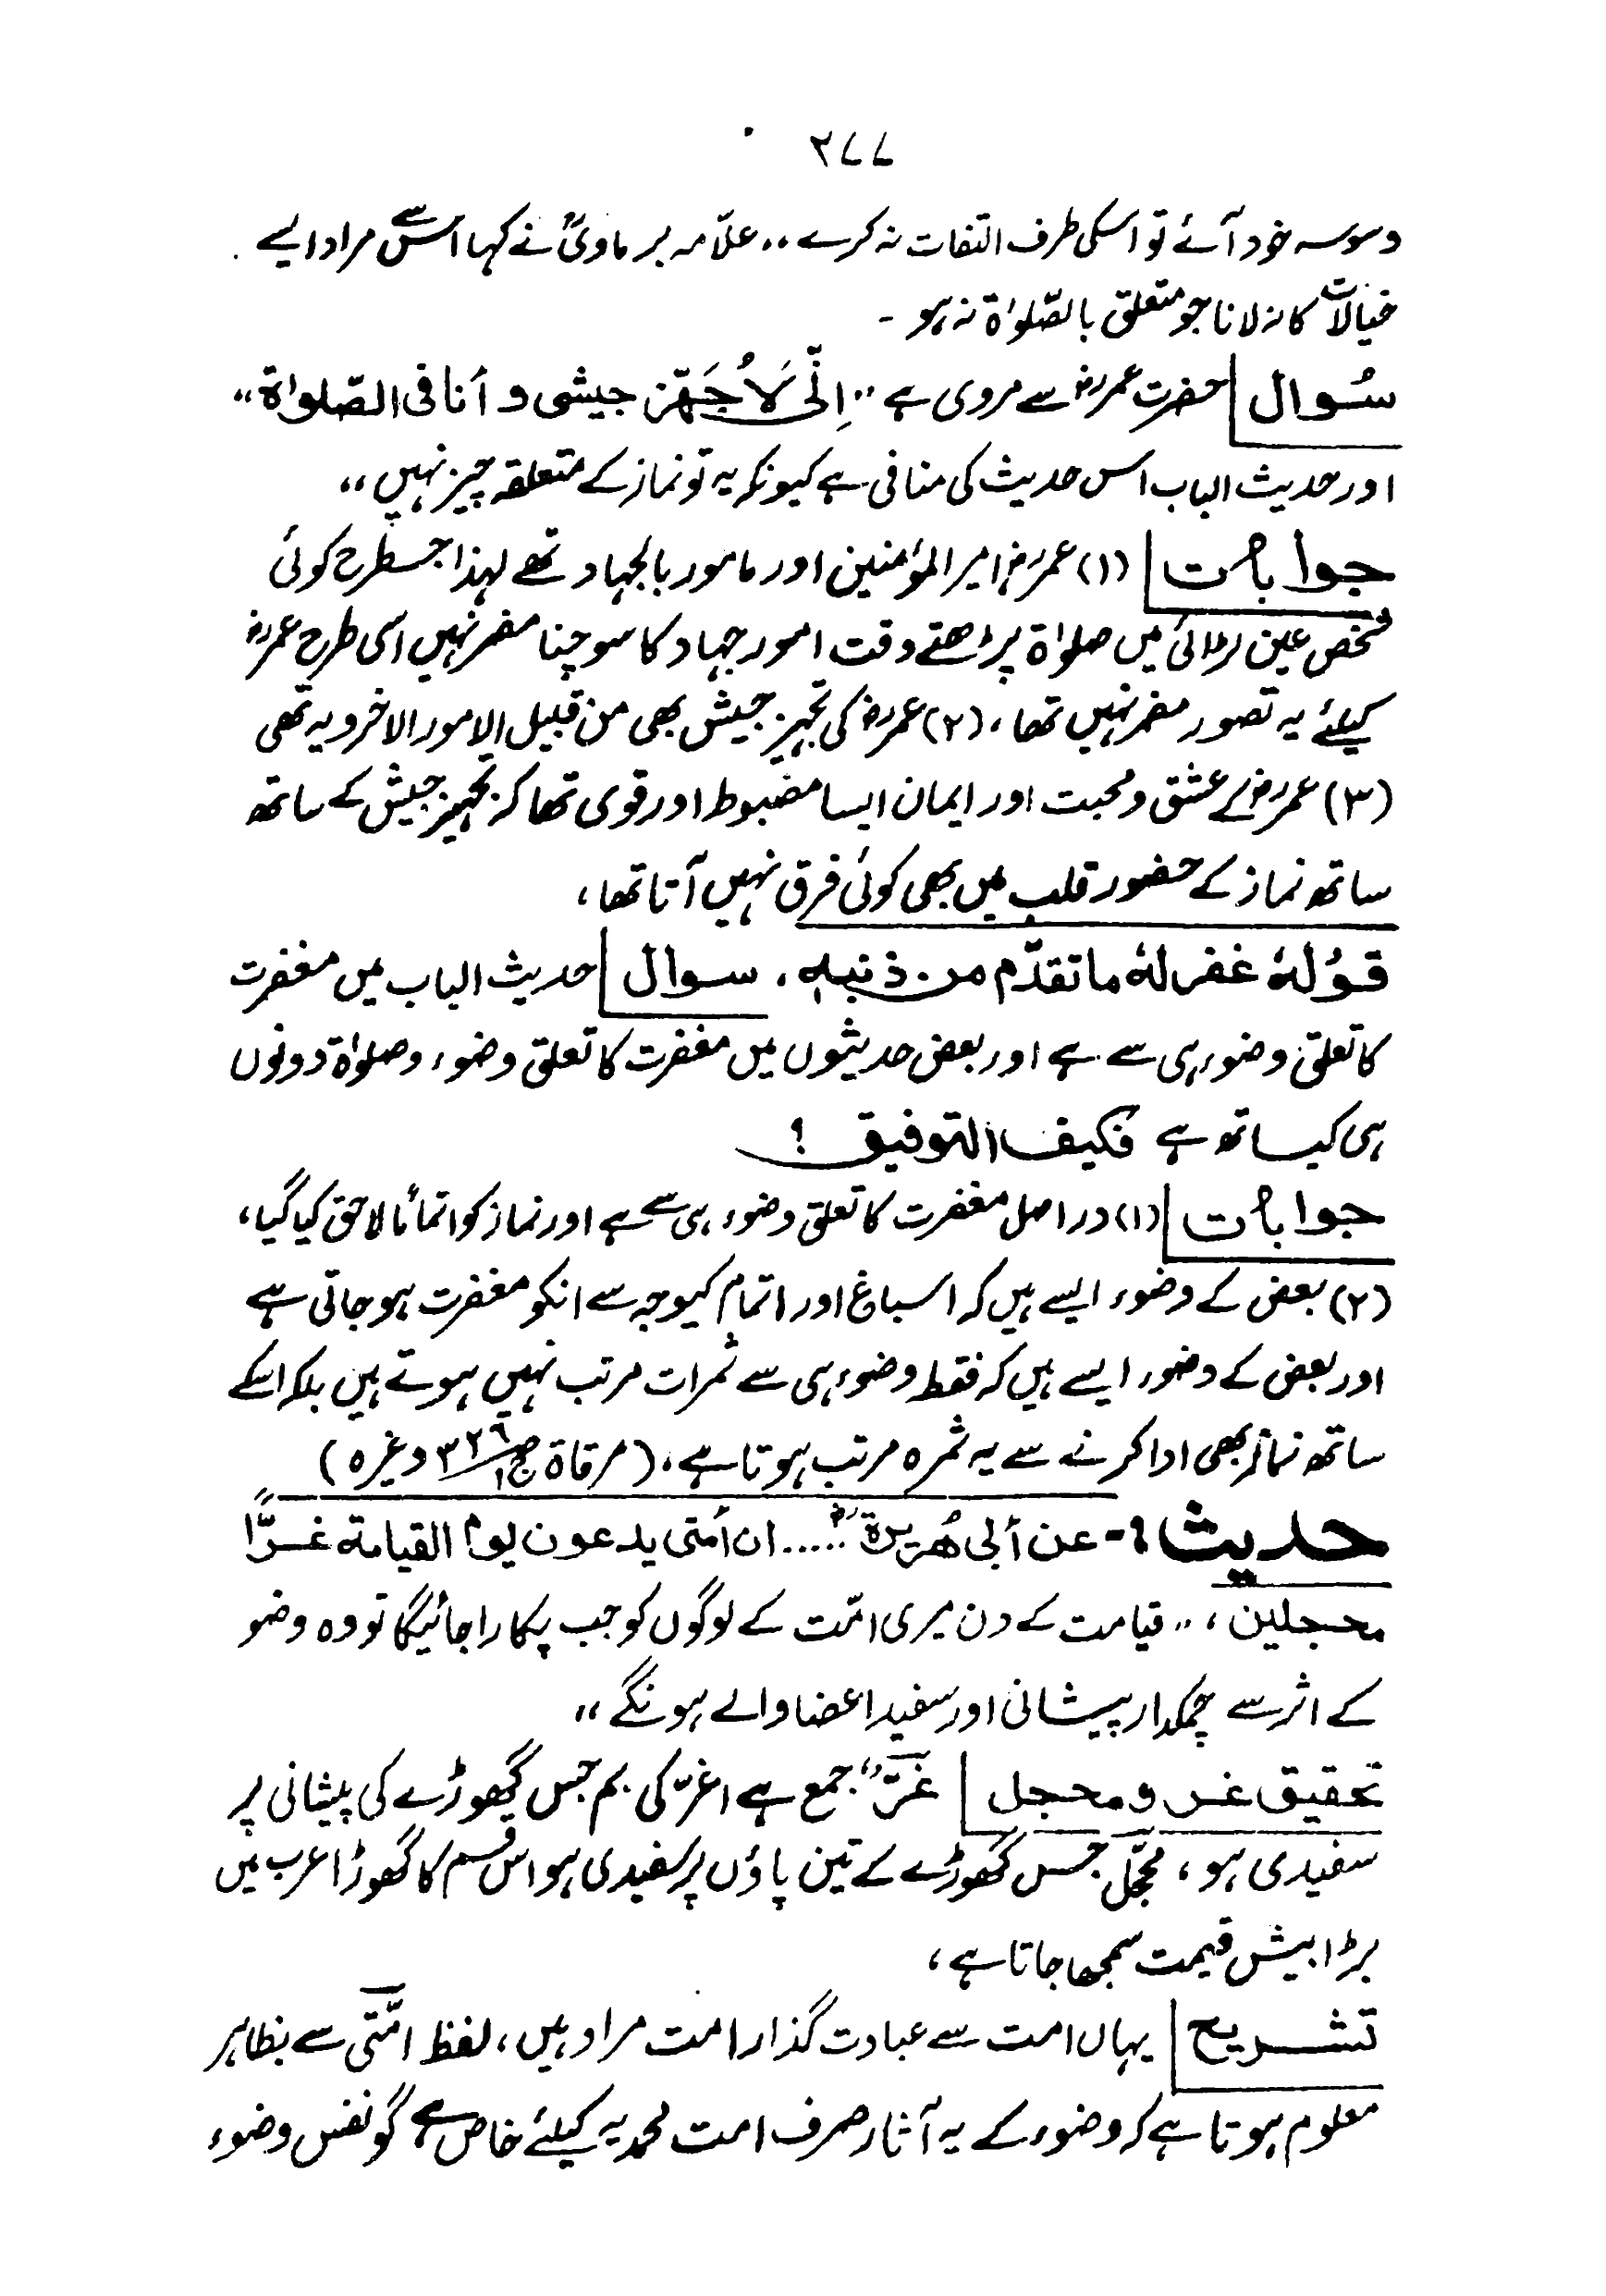 ۲۷۷
وسوسہ خود آئے تو اسکی طرف التفات نہ کرے ،، علّامہ برماویؒ نے کہا اس سے مراد ایسے
خیالات کا نہ لانا جو متعلق بالصّلوٰۃ نہ ہو ۔
سُوال | حضرت عمرؓ سے مروی ہے ،، اِنّی لَاُجَهّز جیشی و أنا فی الصّلوٰة ،،
اور حدیث الباب اس حدیث کی منافی ہے کیونکہ یہ تو نماز کے متعلقہ چیز نہیں ،،
جوابات | (۱) عمرؓ امیر المؤمنین اور مامور بالجہاد تھے لہذا جسطرح کوئی
شخص عین لڑائی میں صلوٰۃ پڑھتے وقت امور جہاد کا سوچنا مضر نہیں اسی طرح عمرؓ
کیلئے یہ تصور مضر نہیں تھا ، (۲) عمرؓ کی تجہیز جیش بھی من قبیل الامور الاخرویہ تھی
(۳) عمرؓ کے عشق و محبت اور ایمان ایسا مضبوط اور قوی تھا کہ تجہیز جیش کے ساتھ
ساتھ نماز کے حضور قلب میں بھی کوئی فرق نہیں آتا تھا ،
قولهٗ غفر لهٗ ما تقدّم من ذنبهٖ ، سوال | حدیث الباب میں مغفرت
کا تعلق وضوء ہی سے ہے اور بعض حدیثوں میں مغفرت کا تعلق وضوء و صلوٰۃ دونوں
ہی کیساتھ ہے فکیف التوفیق ؟
جوابات | (۱) در اصل مغفرت کا تعلق وضوء ہی سے ہے اور نماز کو اتمامًا لاحق کیا گیا ،
(۲) بعض کے وضوء ایسے ہیں کہ اسباغ اور اتمام کیوجہ سے انکو مغفرت ہو جاتی ہے
اور بعض کے وضوء ایسے ہیں کہ فقط وضوء ہی سے ثمرات مرتب نہیں ہوتے ہیں بلکہ اسکے
ساتھ نماز بھی ادا کرنے سے یہ ثمرہ مرتب ہوتا ہے ، (مرقاۃ ص۳۲۶ ج۱ وغیرہ )
حدیث :- عن أبی هُریرةؓ ..... ان أمتی یدعون یوم القیامة غُرًّا
محجلین ، ،، قیامت کے دن میری امّت کے لوگوں کو جب پکارا جائیگا تو وہ وضو
کے اثر سے چمکدار پیشانی اور سفید اعضا والے ہونگے ،،
تحقیق غر و محجل | غُرٌّ جمع ہے اغرّ کی بم جس گھوڑے کی پیشانی پر
سفیدی ہو ، محجّل جس گھوڑے کے تین پاؤں پر سفیدی ہو اس قسم کا گھوڑا عرب میں
بڑا بیش قیمت سمجھا جاتا ہے ،
تشریح | یہاں امت سے عبادت گذار امت مراد ہیں ، لفظ امّتی سے بظاہر
معلوم ہوتا ہے کہ وضوء کے یہ آثار صرف امت محمدیہ کیلئے خاص ہے گو نفس وضوء